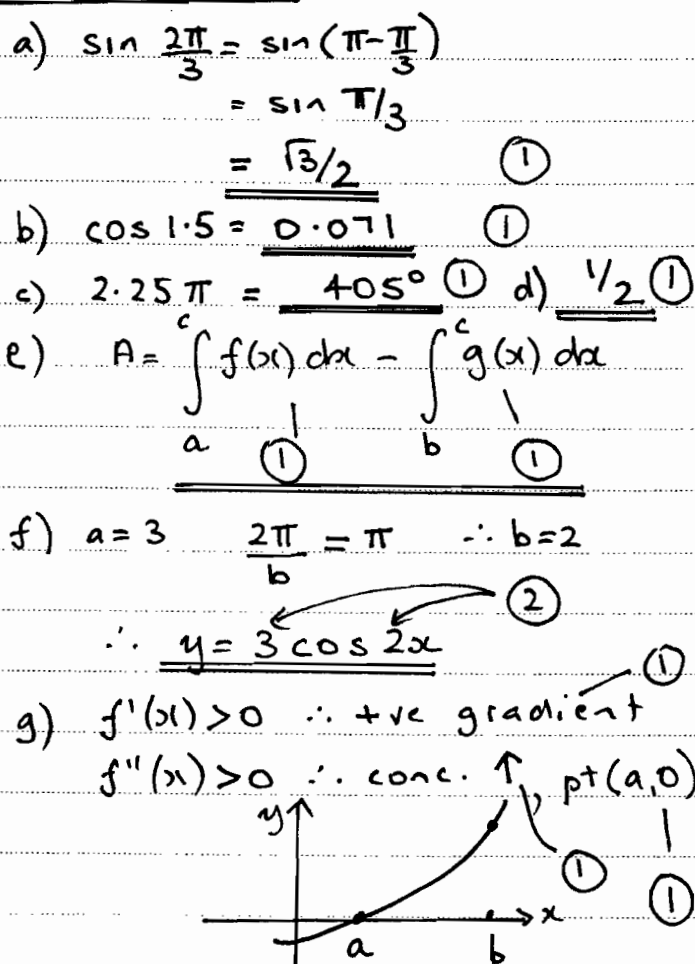 a) sin 2π/3 = sin(π-π/3)
= sin π/3
= √3/2 ①
b) cos 1.5 = 0.071 ①
c) 2.25π = 405° ① d) 1/2 ①
e) A = ∫ₐᶜ f(x) dx - ∫ᵇᶜ g(x) dx
① ①
f) a = 3 2π/b = π ∴ b=2
②
∴ y = 3 cos 2x
①
g) f'(x) > 0 ∴ +ve gradient
f''(x) > 0 ∴ conc. ↑, pt(a,0)
y
① ①
x
a b